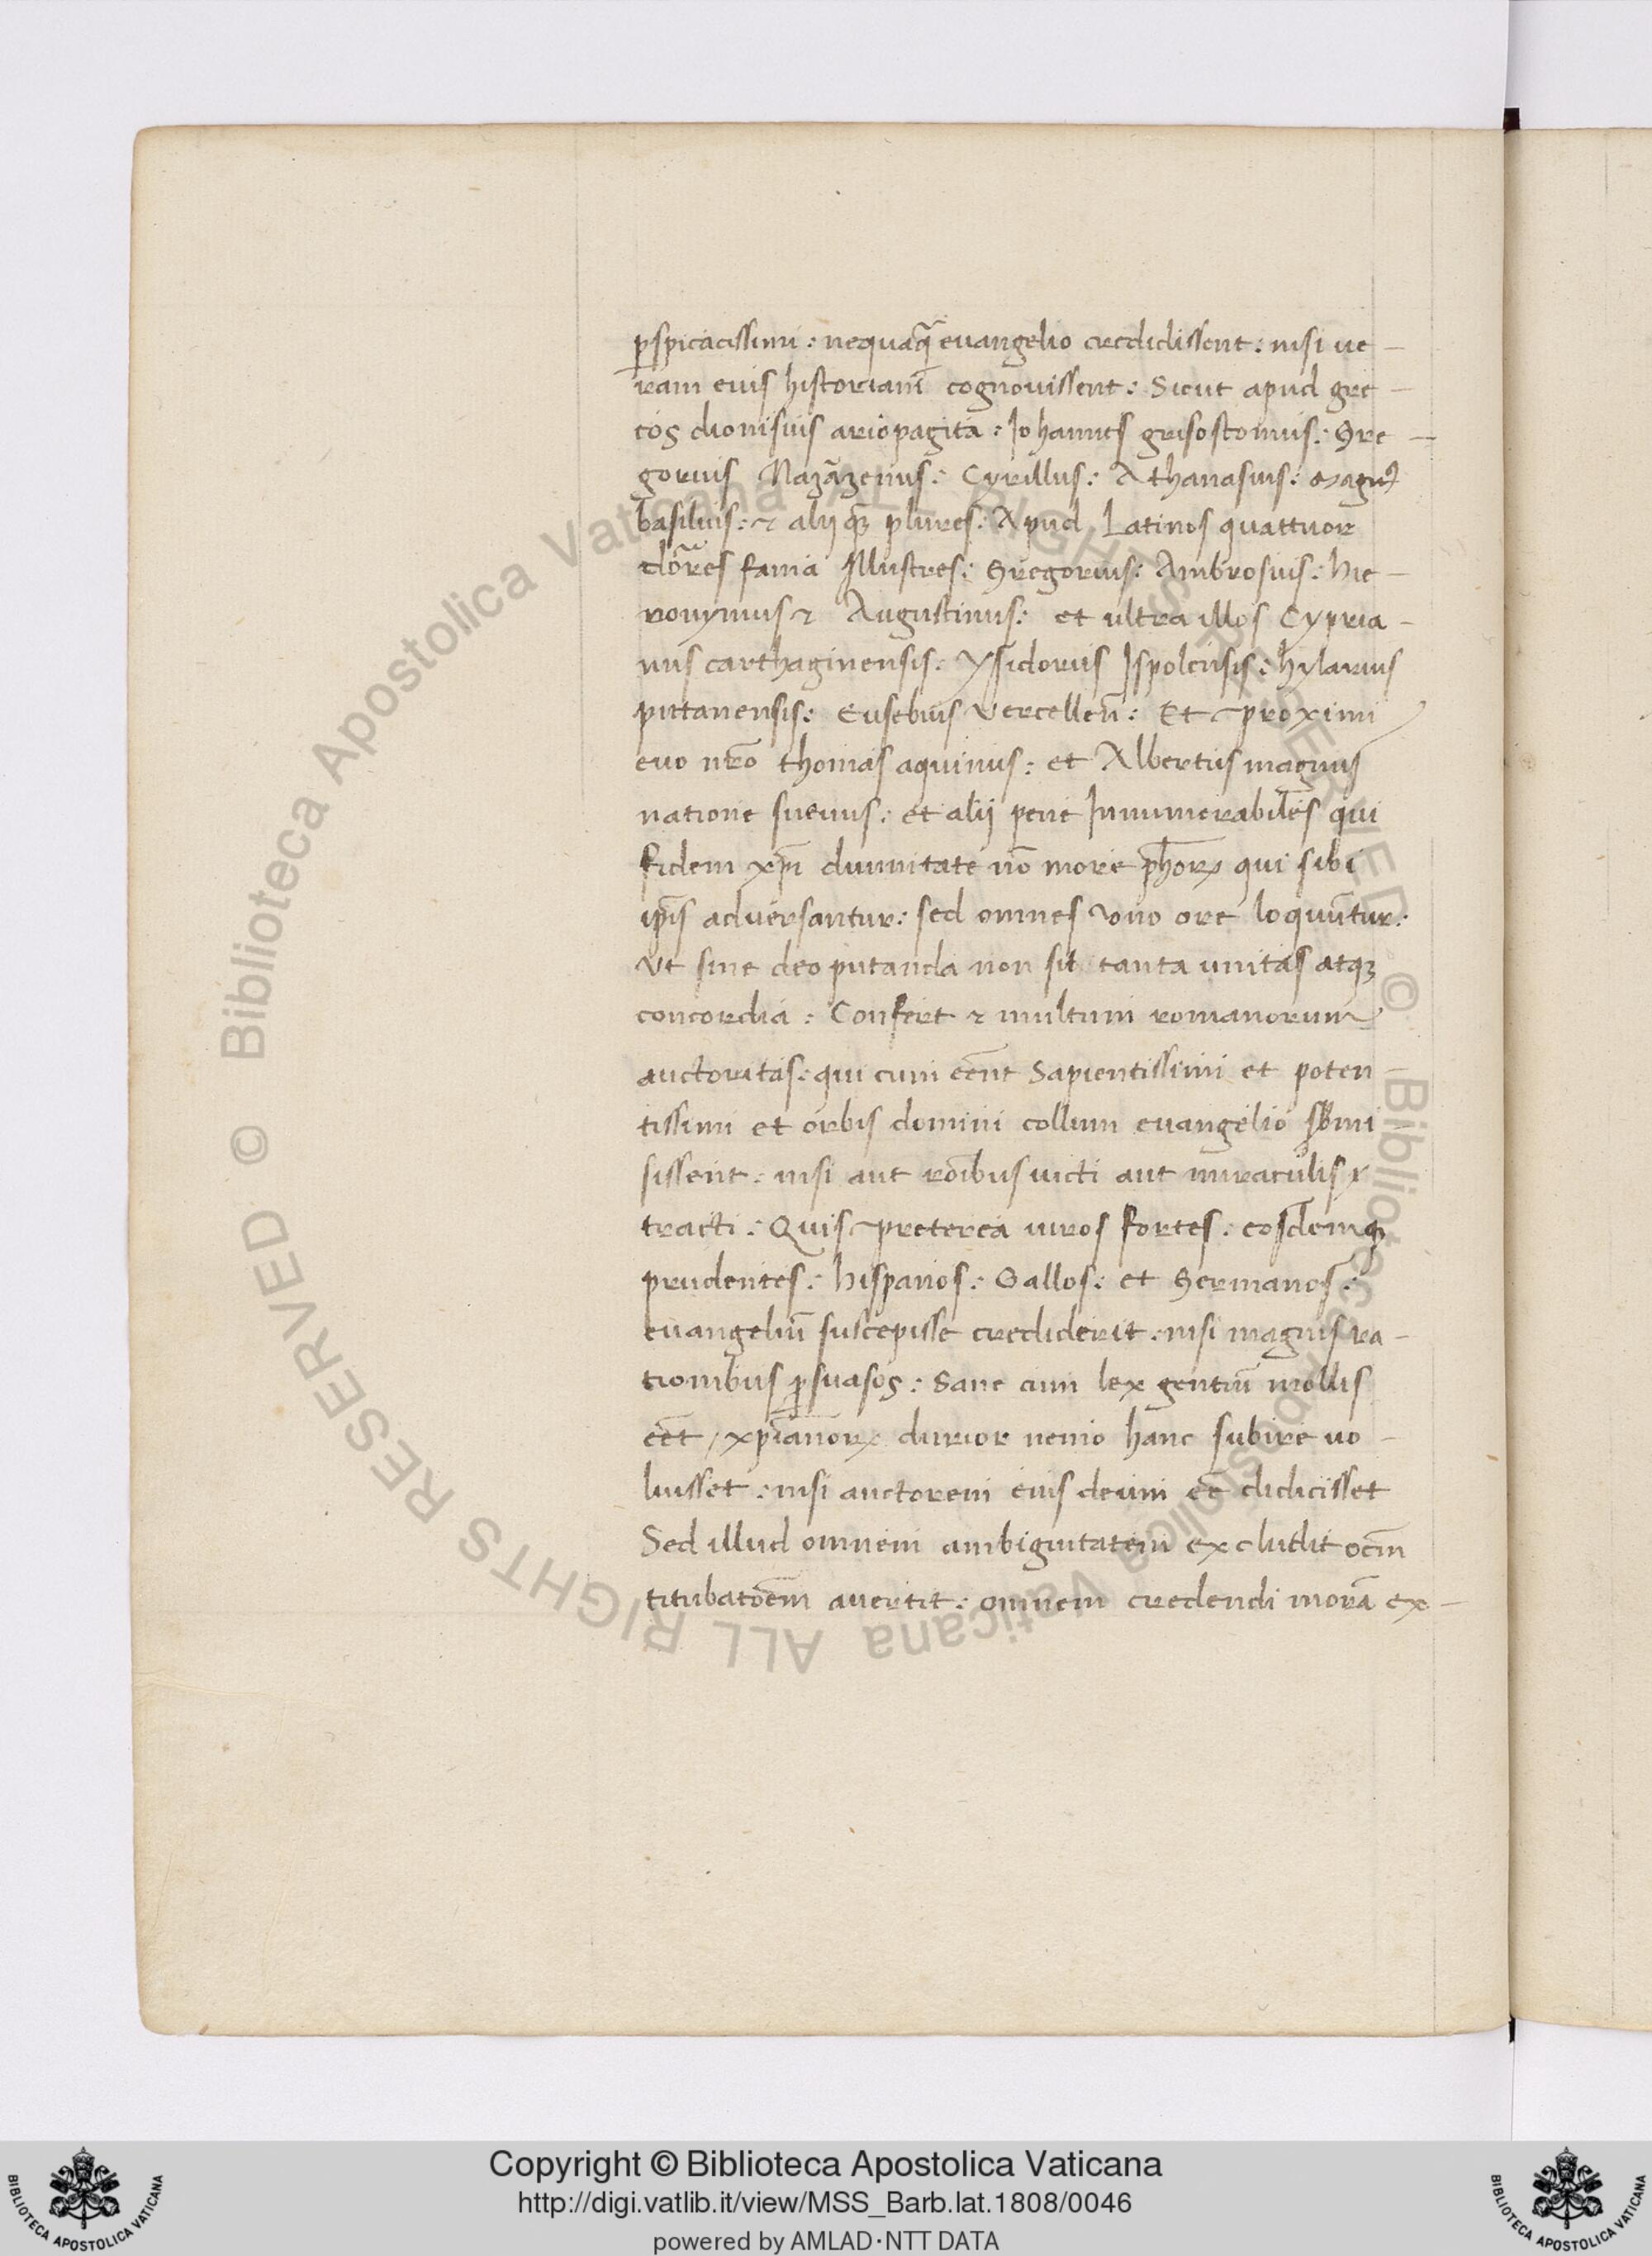 ꝑspicacissimi : nequaq̃ euangelio credidissent : nisi ue-
ram eius historiam cognouissent : Sicut apud gre-
cos dionisius ariopagita : Johannes grisostomus : Gre-
gorius Nazãzenus : Cyrillus : Athanasius : magnꝰ
basilius : ⁊ alijqꝫ plures : Apud Latinos quattuor
doc̃res fama Illustres : Gregorius : Ambrosius : hie-
ronymus ⁊ Augustinus : et ultra illos Cypria-
nus carthaginensis : Ysidorus Ispolensis : hylarius
pictauensis : Eusebius Vercelleñ : Et proximi
euo nr̃o thomas aquinus : et Albertus magnus
natione sueuus : et alij pene Innumerabiles qui
fidem xp̃i diuinitate nõ more ph̃oꝝ qui sibi
ip̃is aduersantur : sed omnes vno ore loquũtur :
Vt sine deo putanda non sit tanta unitas atqꝫ
concordia : Confert ⁊ multum romanorum
auctoritas : qui cum eẽnt Sapientissimi et poten-
tissimi et orbis domini collum euangelio sbmi
sissent : nisi aut rõibus uicti aut miraculis
tracti : Quis preterea uiros fortes : eosdemqꝫ
prudentes : hispanos : Gallos : et Germanos :
euangeliũ suscepisse crediderit : nisi magnis ra-
tionibus ꝑsuasos : Sane cum lex gentiũ mollis
eẽt / xp̃ianoꝝ durior nemo hanc subire uo-
luisset : nisi auctorem eius deum eẽ didicisset
Sed illud omnem ambiguitatem excludit oẽm
titubatõem auertit : omnem credendi morã ex-
Copyright © Biblioteca Apostolica Vaticana
http://digi.vatlib.it/view/MSS_Barb.lat.1808/0046
powered by AMLAD·NTT DATA
BIBLIOTECA APOSTOLICA VATICANA
BIBLIOTECA APOSTOLICA VATICANA
© Biblioteca Apostolica Vaticana ALL RIGHTS RESERVED © Biblioteca Apostolica Vaticana ALL RIGHTS RESERVED